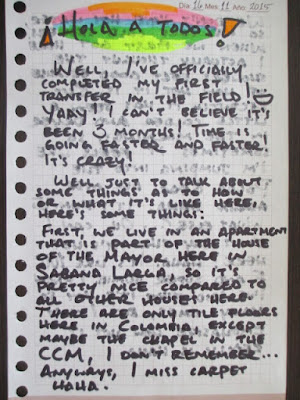 Dia 16 Mes 11 Año 2015
¡HOLA A TODOS!
WELL, I'VE OFFICIALLY
COMPLETED MY FIRST
TRANSFER IN THE FIELD!
YAAY! I CAN'T BELIEVE IT'S
BEEN 3 MONTHS! TIME IS
GOING FASTER AND FASTER!
IT'S CRAZY!
WELL JUST TO TALK ABOUT
SOME THINGS AS TO HOW
OR WHAT IT'S LIKE HERE,
HERE'S SOME THINGS:
FIRST, WE LIVE IN AN APARTMENT
THAT IS PART OF THE HOUSE
OF THE MAYOR HERE IN
SABANA LARGA, SO IT'S
PRETTY NICE COMPARED TO
ALL OTHER HOUSES HERE.
THERE ARE ONLY TILE FLOORS
HERE IN COLOMBIA EXCEPT
MAYBE THE CHAPEL IN THE
CCM, I DON'T REMEMBER...
ANYWAYS, I MISS CARPET
HAHA.